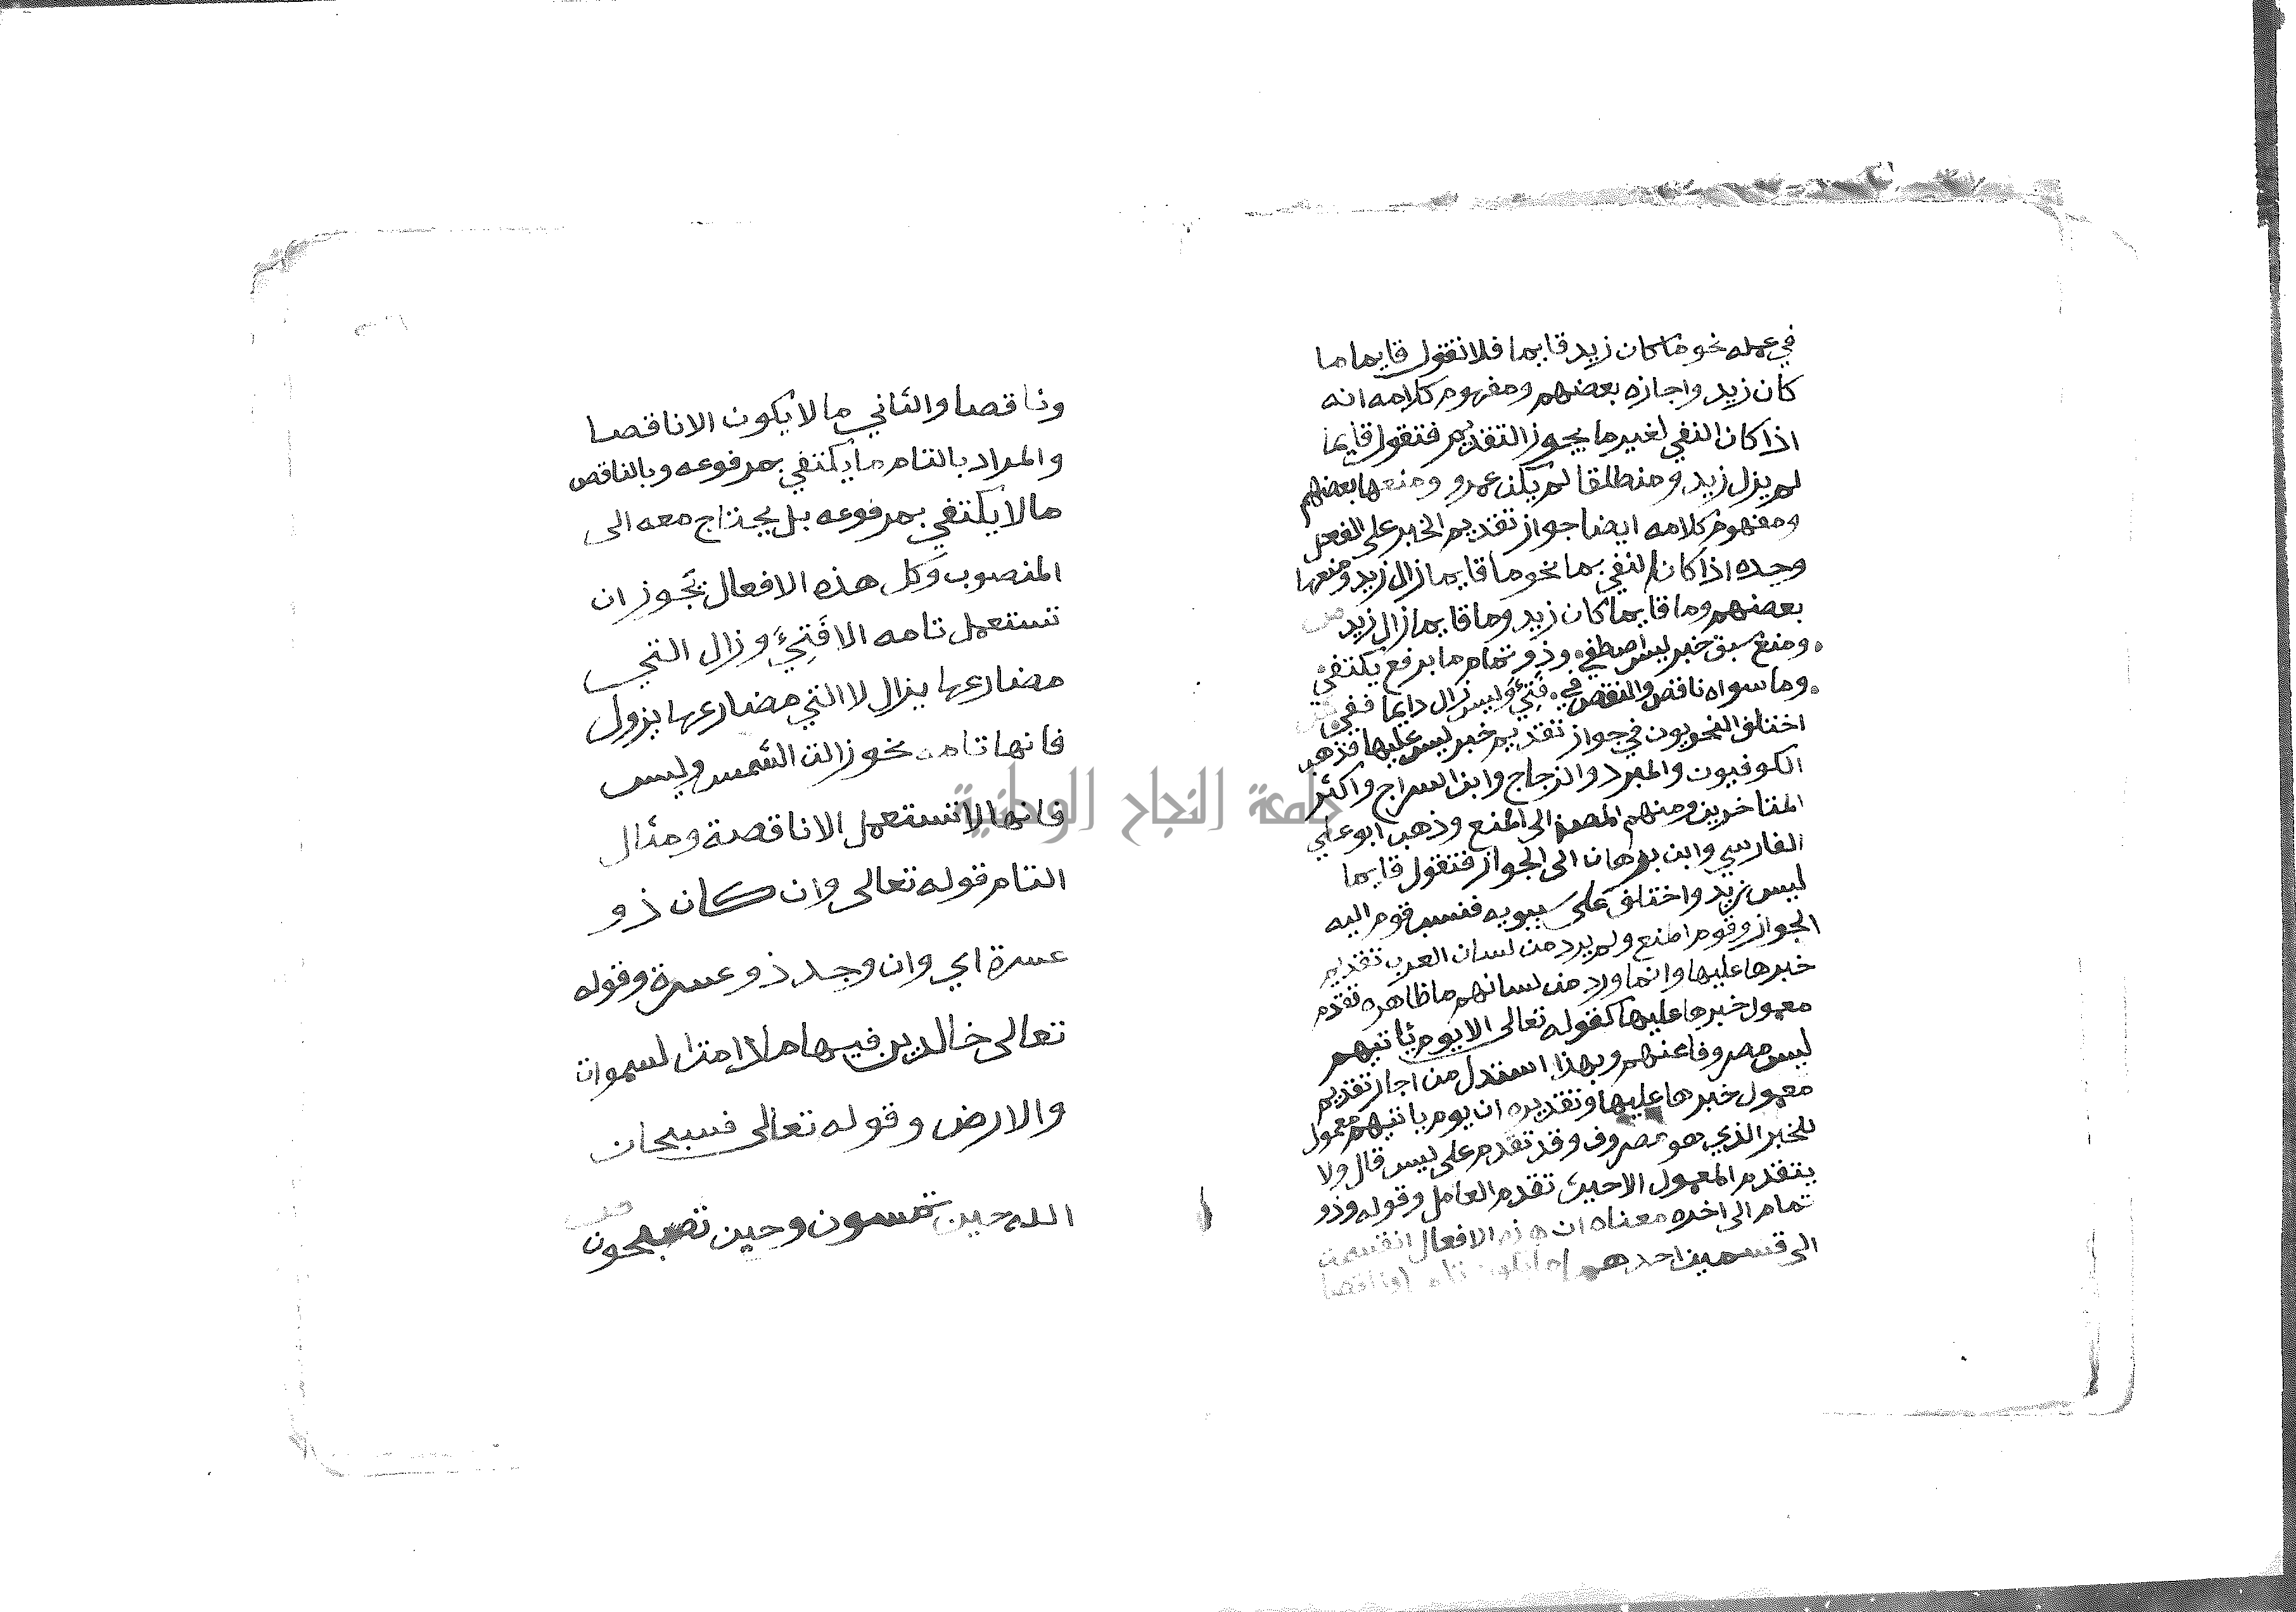 في عمله نحو ما كان زيد قايما فلا تقول قايما ما
كان زيد واجازه بعضهم ومفهوم كلامه انه
اذا كان النفي لغير ما يجوز التقديم فتقول قايما
لم يزل زيد ومنطلقا لم يكن عمرو ومنعها بعضهم
ومفهوم كلامه ايضا جواز تقديم الخبر على الفعل
وحده اذا كان النفي بما نحو ما قايما زال زيد ومنعها
بعضهم وما قايما كان زيد وما قايما زال زيد ص
ومنع سبق خبر ليس اصطفي وذو تمام ما برفع يكتفي
وما سواه ناقص والنقص في فَتِئَ وليس زال دايما قفي ش
اختلف النحويون في جواز تقديم خبر ليس عليها فذهب
الكوفيون والمبرد والزجاج وابن السراج واكثر
المتاخرين ومنهم المصنف الى المنع وذهب ابو علي
الفارسي وابن برهان الى الجواز فتقول قايما
ليس زيد واختلف على سيبويه فنسب قوم اليه
الجواز وقوم المنع ولم يرد من لسان العرب تقديم
خبرها عليها وانما ورد من لسانهم ما ظاهره تقدم
معمول خبرها عليها كقوله تعالى الا يوم ياتيهم
ليس مصروفا عنهم وبهذا استدل من اجاز تقديم
معمول خبرها عليها وتقديره ان يوم ياتيهم معمول
للخبر الذي هو مصروف وقد تقدم على ليس قال ولا
يتقدم المعمول الا حيث تقدم العامل وقوله وذو
تمام الى اخره معناه ان هذه الافعال انقسمت
الى قسمين احدهما ما يكون تاما وناقصا
وناقصا والثاني ما لا يكون الا ناقصا
والمراد بالتام ما يكتفي بمرفوعه وبالناقص
ما لا يكتفي بمرفوعه بل يحتاج معه الى
المنصوب وكل هذه الافعال يَجوز ان
تستعمل تامه الا فَتِئَ وزال التي
مضارعها يزال لا التي مضارعها يزول
فانها تامه نحو زالت الشمس وليس
فانها لا تستعمل الا ناقصة ومثال
التام قوله تعالى وان كان ذو
عسرة اي وان وجد ذو عسرة وقوله
تعالى خالدين فيها ما دامت السموات
والارض وقوله تعالى فسبحان
الله حين تمسون وحين تصبحون
ص
جامعة النجاح الوطنية